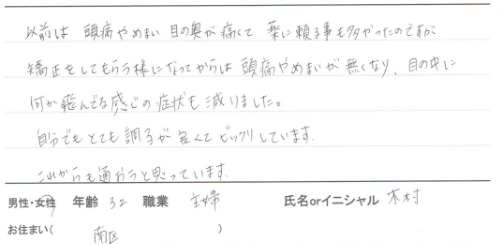 以前は 頭痛やめまい 目の奥が痛くて 薬に頼る事も多かったのですが
矯正をしてもらう様になってからは 頭痛やめまいが 無くなり、目の中に
何か飛んでる感じの症状も減りました。
自分でもとても調子が良くてビックリしています。
これからも通おうと思っています。
男性・女性 年齢 32 職業 主婦 氏名orイニシャル 木村
お住まい( 南区 )